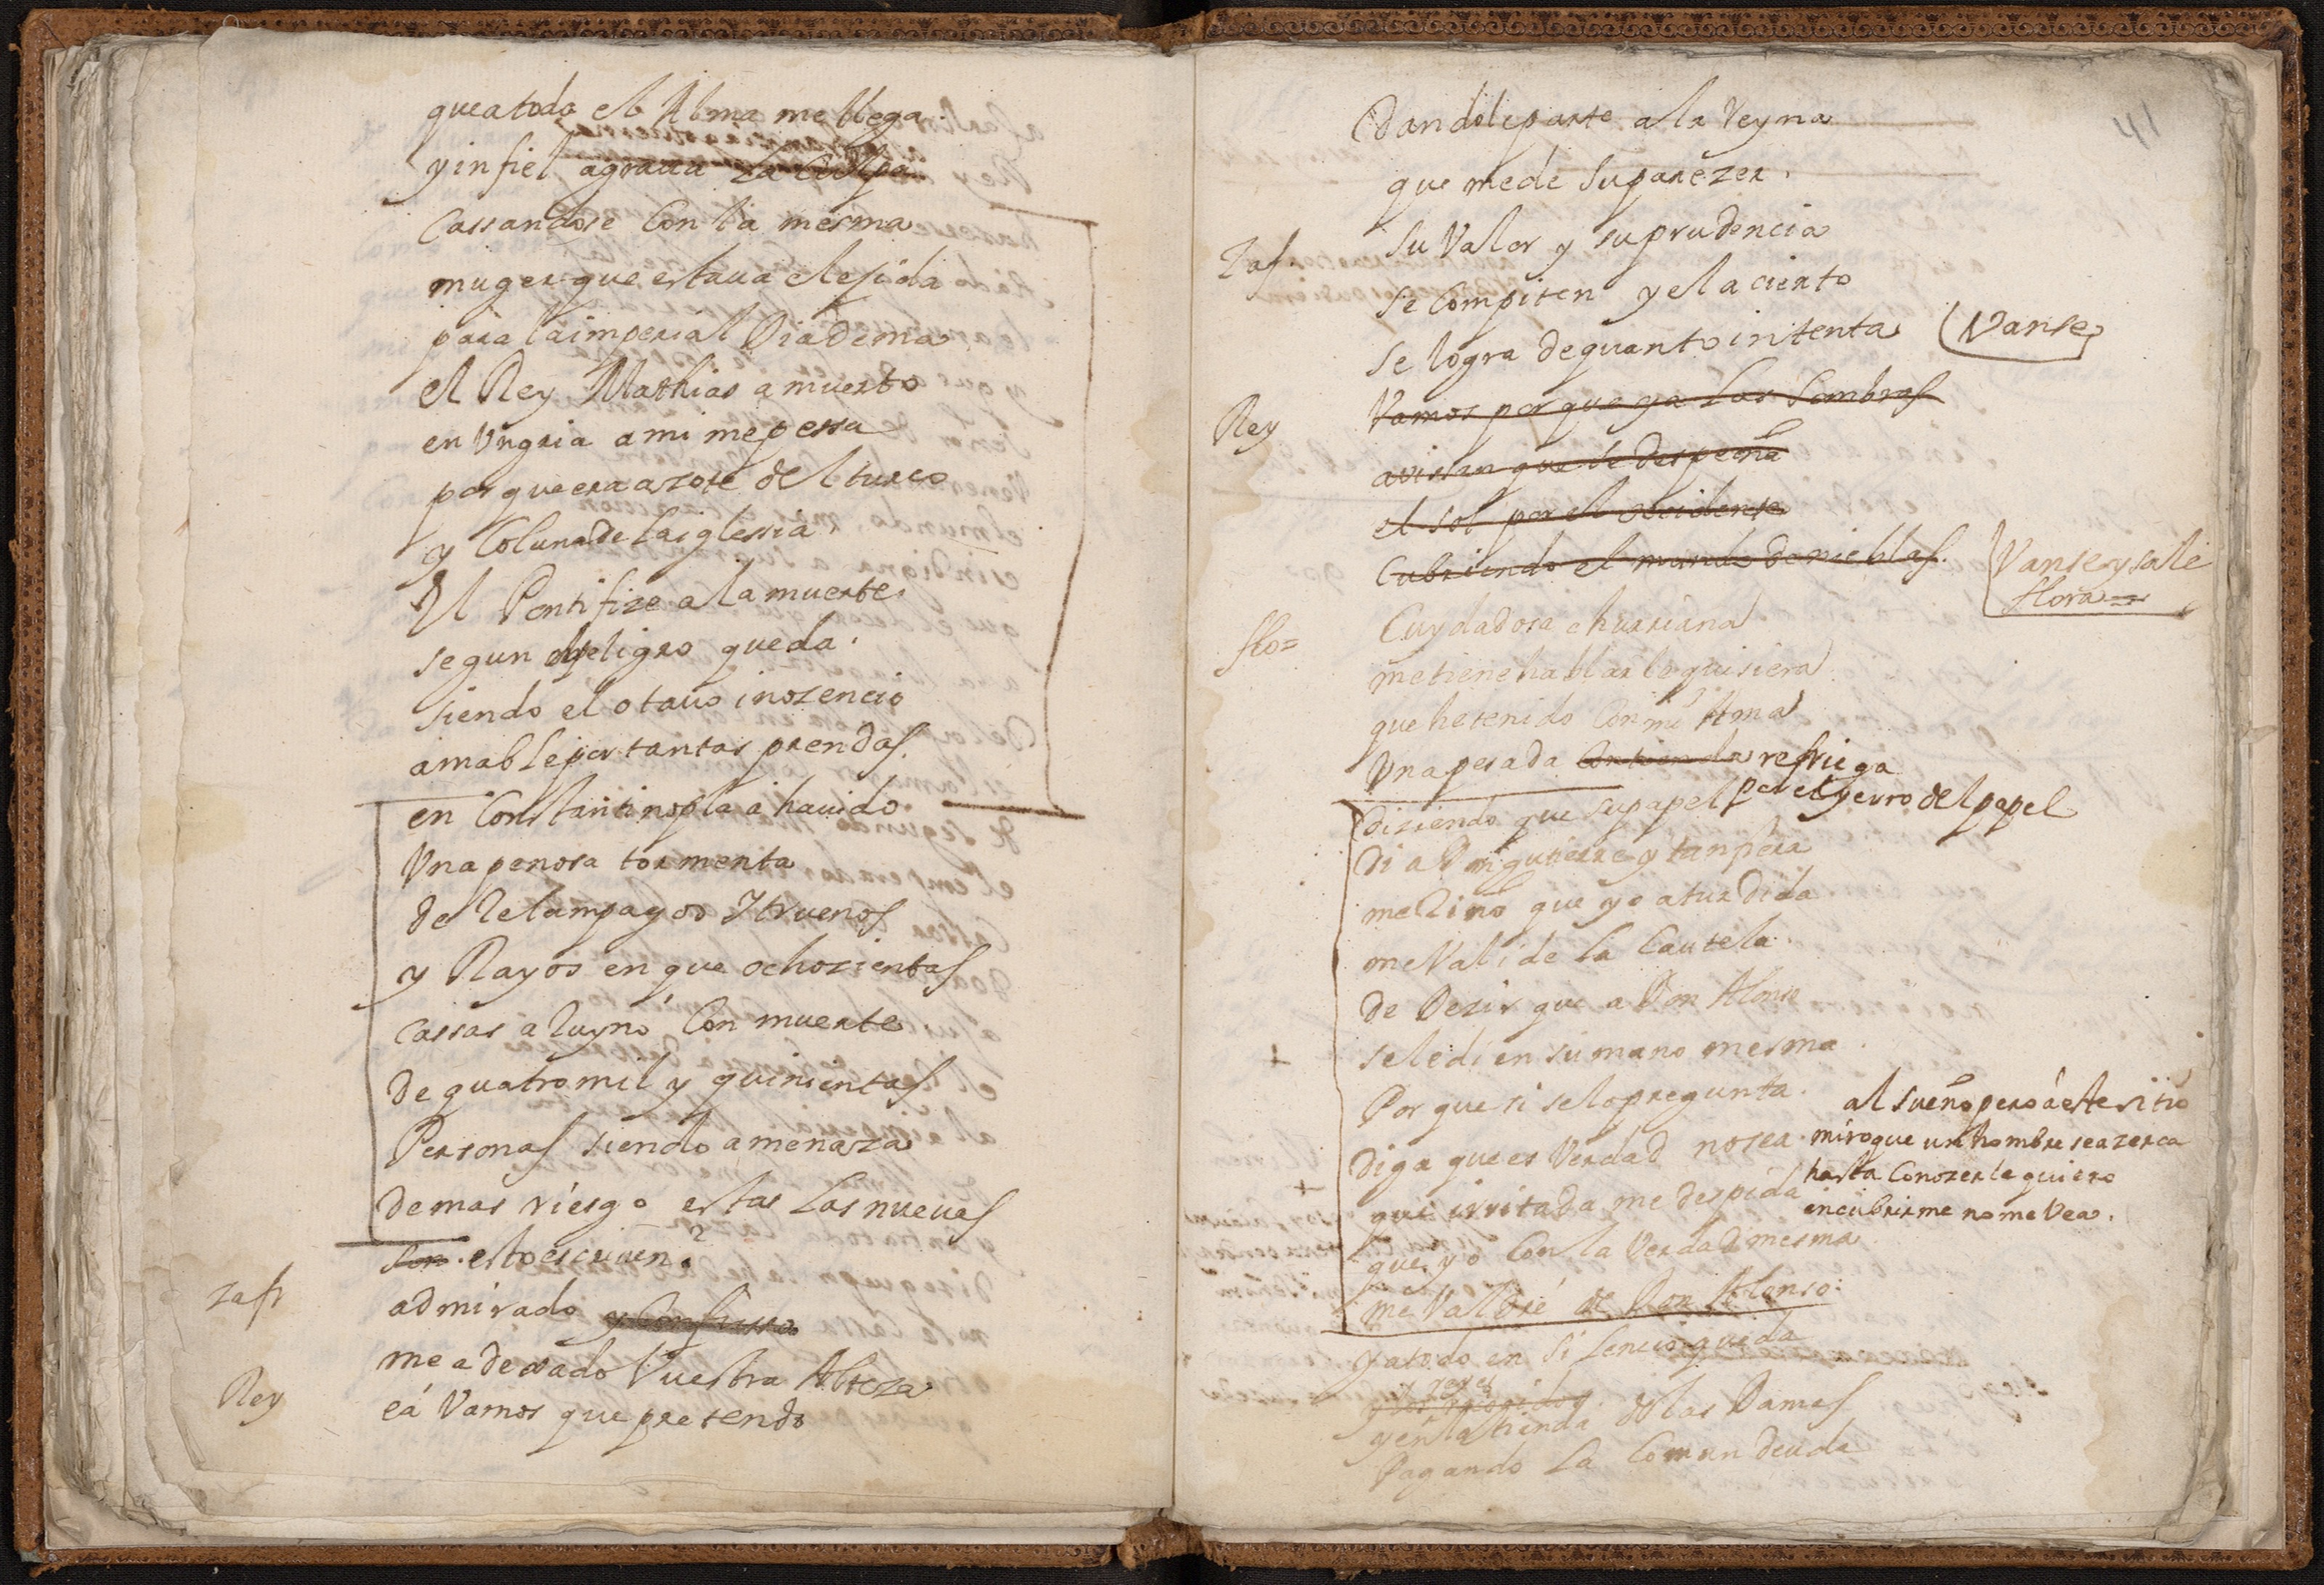 que a toda el Alma me llega.
y infiel agraua la Culpa
Cassandose Con la mesma
muger que estaua elejida
para la imperial Diadema
el Rey Mathias a muerto
en Vngria a mi me pessa
por que era azote del turco
y Coluna de la iglessia
El Pontifize a la muerte.
segun el peligro queda.
siendo el otauo inozencio
amable por tantas prendas.
en Constantinopla a hauido
Vna penosa tormenta
de Relampagos Y truenos
y Rayos en que ochozientas
cassas a Ruyno Con muerte
de quatro mil y quinientas
Personas siendo amenaza
de mas riesgo estas Las nueuas
Son. esto escriuen.
Zafr
admirado y Confusso
me a dexado Vuestra Alteza
Rey
eá Vamos que pretendo
41
Dandole parte a la Reyna
que me de su parezer.
Zaf.
Su Valor y su prudencia
se Compiten y el acierto
se logra de quanto intenta
Vanse
Rey
Vamos por que ya Las Sombras
avissan que se despeña
el sol por el occidente
Cubriendo el mundo de nieblas.
Vanse y sale
flora
flo=
Cuydadosa churriana
me tiene hablarle quisiera
que he tenido Con mi Ama
Vna pesada Contienda refriega
por el yerro del papel
diziendo que su papel
di a Don gutierre y tan fiera
me Riño que yo aturdida
me Vali de la Cautela.
de Dezir que a Don Alonso
se le di en su mano mesma.
Por que si se lo pregunta.
diga que es Verdad no sea.
que irritada me despida
que yo Con la Verdad mesma
me Valdré de Don Alonso.
al sueño pero á este sitio
miro que un hombre se azerca
hasta Conozerle quiero
encubrirme no me Vea.
ya todo en silencio queda
y en la tienda de las Damas
Pagando La Comun deuda